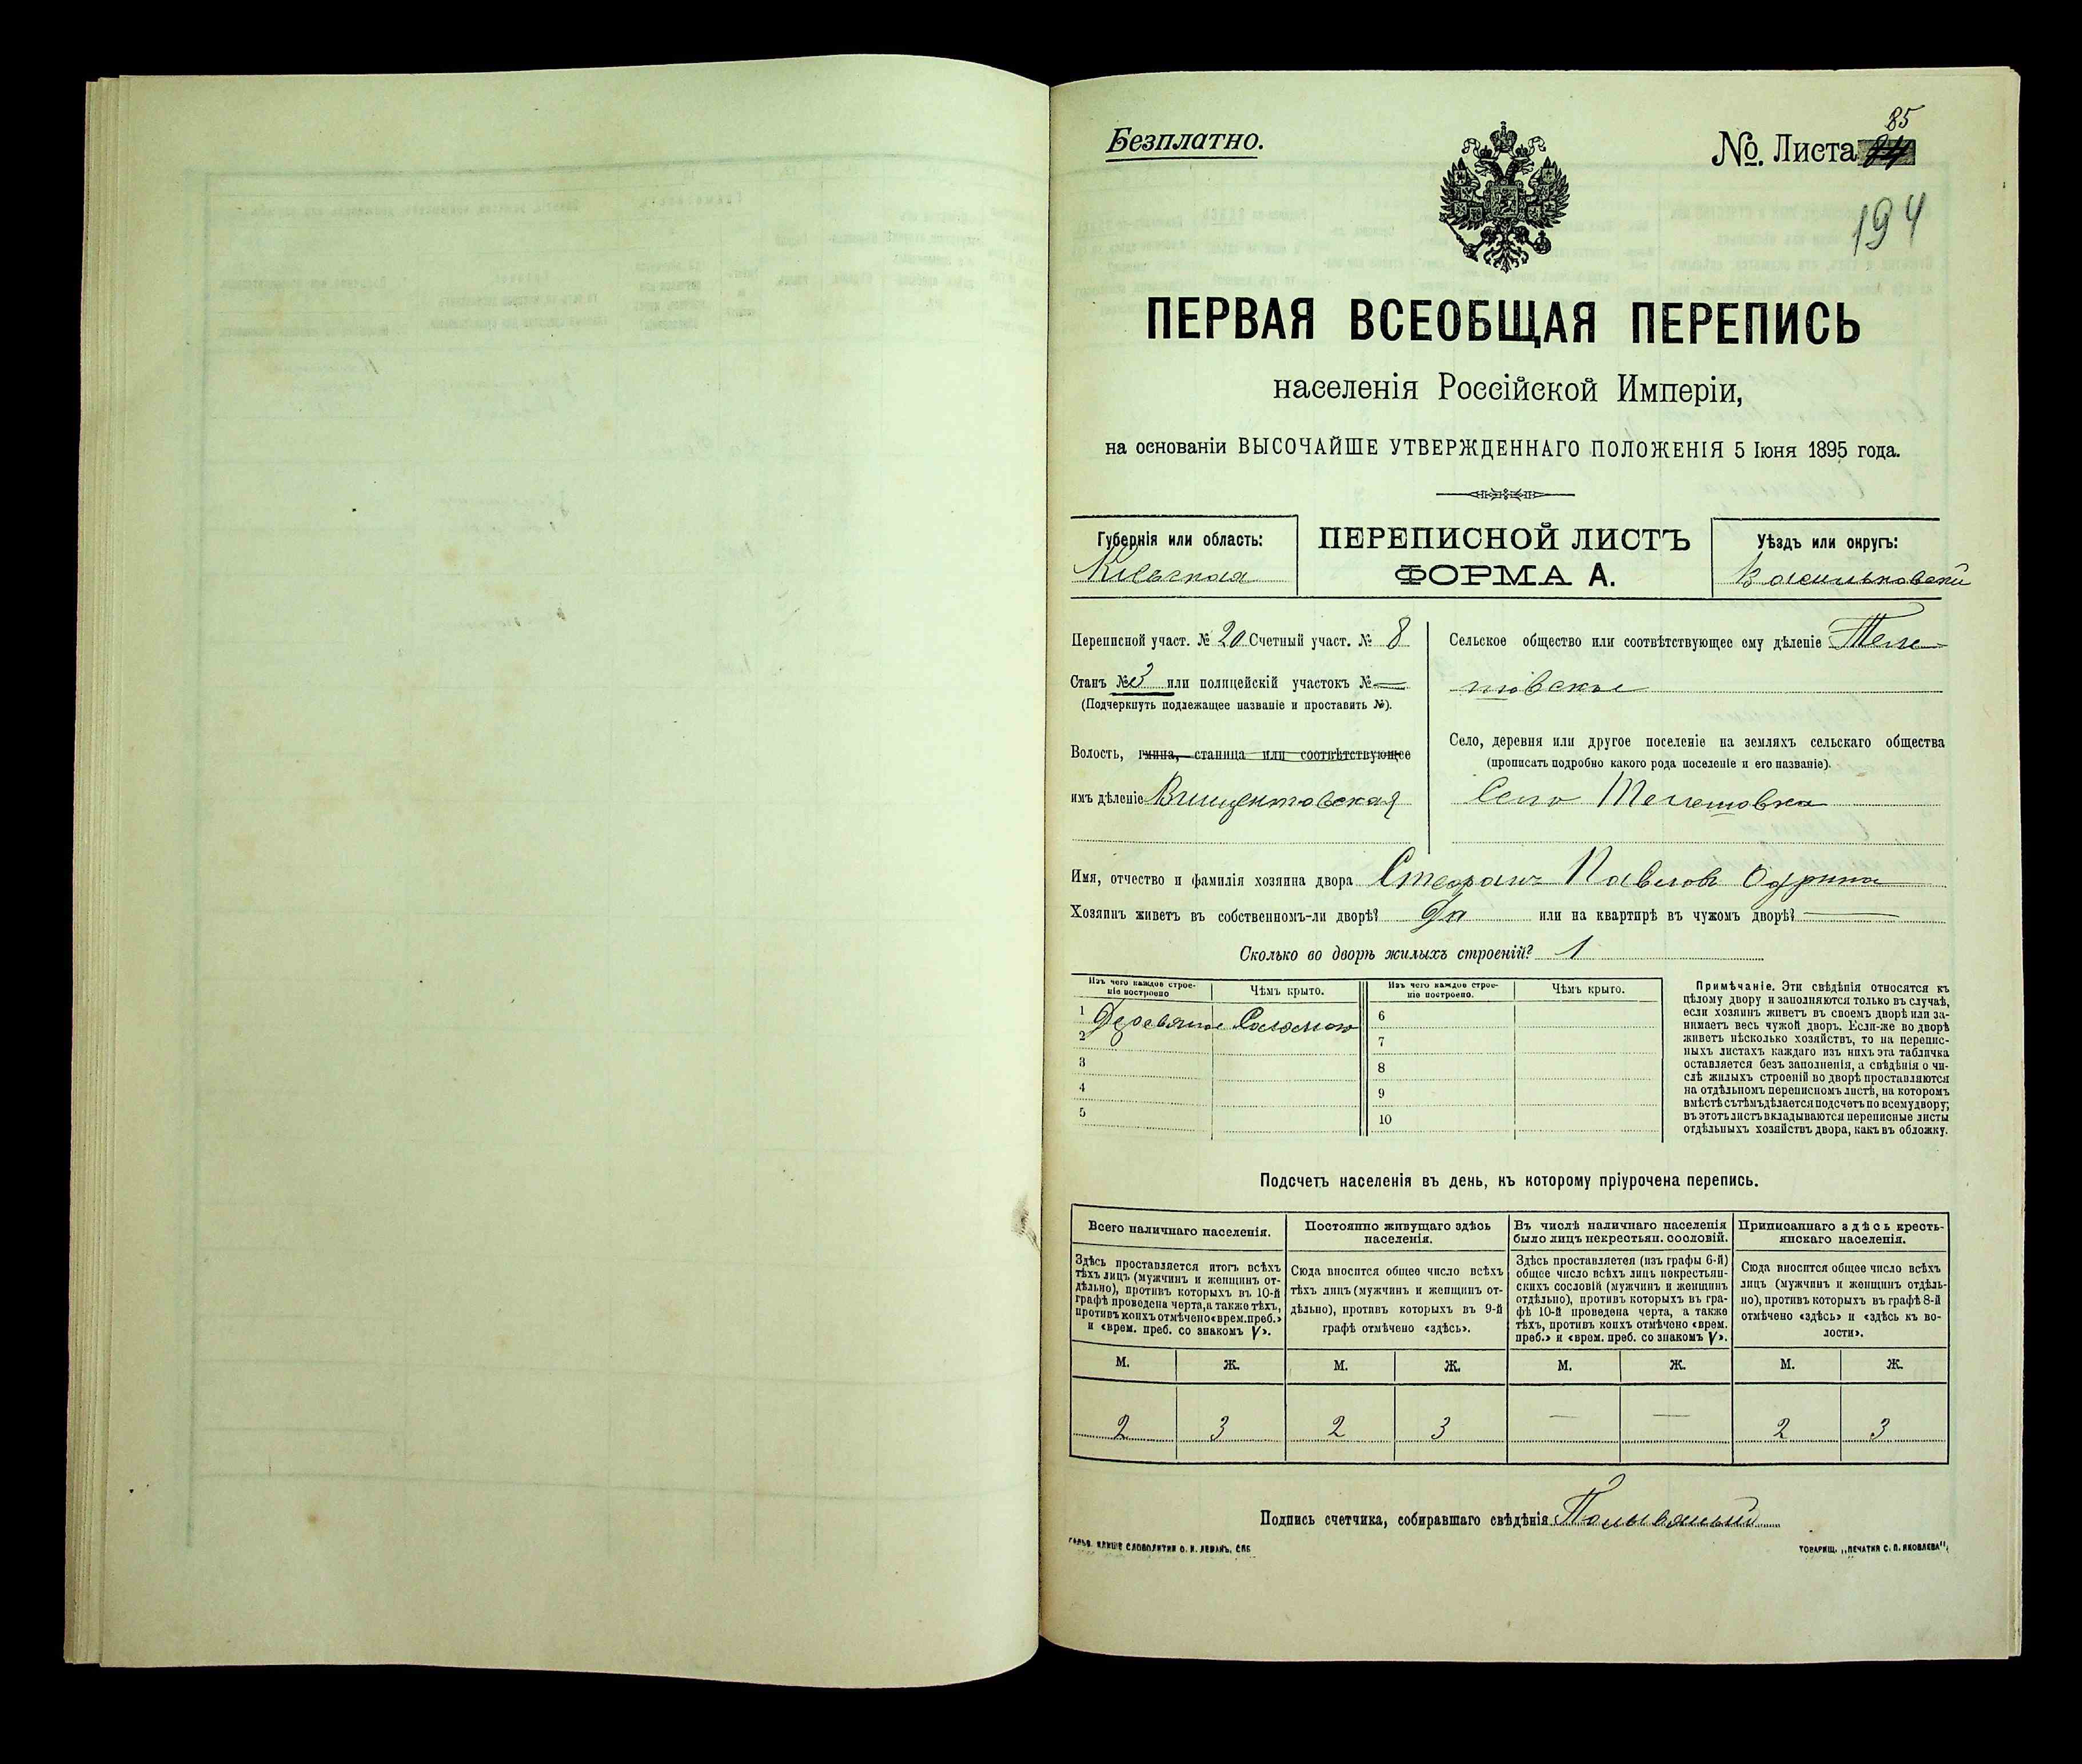 Безплатно.
№ Листа 84
85
194
ПЕРВАЯ ВСЕОБЩАЯ ПЕРЕПИСЬ
населенія Россійской Имперіи,
на основаніи ВЫСОЧАЙШЕ УТВЕРЖДЕННАГО ПОЛОЖЕНІЯ 5 Іюня 1895 года.
Губернія или область:
Кіевская
ПЕРЕПИСНОЙ ЛИСТЪ
ФОРМА А.
Уѣздъ или округъ:
Васильковскій
Переписной участ. № 20 Счетный участ. № 8
Станъ № 3 или полицейскій участокъ № —
(Подчеркнуть подлежащее названіе и проставить №).
Волость, гмина, станица или соотвѣтствующее
имъ дѣленіе Винцентовская
Сельское общество или соотвѣтствующее ему дѣленіе Теле-
шовское
Село, деревня или другое поселеніе на земляхъ сельскаго общества
(прописать подробно какого рода поселеніе и его названіе).
Село Телешовка
Имя, отчество и фамилія хозяина двора Стефанъ Павловъ
Хозяинъ живетъ въ собственномъ-ли дворѣ? Да или на квартирѣ въ чужомъ дворѣ? —
Сколько во дворѣ жилыхъ строеній? 1
Изъ чего каждое строе-
ніе построено
Чѣмъ крыто.
Изъ чего каждое строе-
ніе построено.
Чѣмъ крыто.
1 Деревянное Соломою
2
3
4
5
6
7
8
9
10
Примѣчаніе. Эти свѣдѣнія относятся къ
цѣлому двору и заполняются только въ случаѣ,
если хозяинъ живетъ въ своемъ дворѣ или за-
нимаетъ весь чужой дворъ. Если-же во дворѣ
живетъ нѣсколько хозяйствъ, то на перепис-
ныхъ листахъ каждаго изъ нихъ эта табличка
оставляется безъ заполненія, а свѣдѣнія о чи-
слѣ жилыхъ строеній во дворѣ проставляются
на отдѣльномъ переписномъ листѣ, на которомъ
вмѣстѣ съ тѣмъ дѣлается подсчетъ по всему двору;
въ этотъ листъ вкладываются переписные листы
отдѣльныхъ хозяйствъ двора, какъ въ обложку.
Подсчетъ населенія въ день, къ которому пріурочена перепись.
Всего наличнаго населенія.
Здѣсь проставляется итогъ всѣхъ
тѣхъ лицъ (мужчинъ и женщинъ от-
дѣльно), противъ которыхъ въ 10-й
графѣ проведена черта, а также тѣхъ,
противъ коихъ отмѣчено «врем. преб.»
и «врем. преб. со знакомъ V».
Постоянно живущаго здѣсь
населенія.
Сюда вносится общее число всѣхъ
тѣхъ лицъ (мужчинъ и женщинъ от-
дѣльно), противъ которыхъ въ 9-й
графѣ отмѣчено «здѣсь».
Въ числѣ наличнаго населенія
было лицъ некрестьян. сословій.
Здѣсь проставляется (изъ графы 6-й)
общее число всѣхъ лицъ некрестьян-
скихъ сословій (мужчинъ и женщинъ
отдѣльно), противъ которыхъ въ гра-
фѣ 10-й проведена черта, а также
тѣхъ, противъ коихъ отмѣчено «врем.
преб.» и «врем. преб. со знакомъ V».
Приписаннаго здѣсь кресть-
янскаго населенія.
Сюда вносится общее число всѣхъ
лицъ (мужчинъ и женщинъ отдѣль-
но), противъ которыхъ въ графѣ 8-й
отмѣчено «здѣсь» и «здѣсь къ во-
лости».
М. Ж. М. Ж. М. Ж. М. Ж.
2 3 2 3 — — 2 3
Подпись счетчика, собиравшаго свѣдѣнія
ГАЛЬВ. КЛИШЕ СЛОВОЛИТНИ О. И. ЛЕМАНЪ, СПБ
ТОВАРИЩ. „ПЕЧАТНЯ С. П. ЯКОВЛЕВА“.